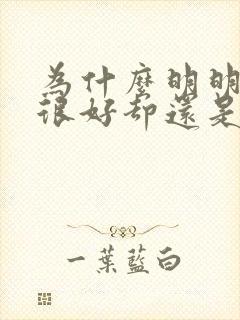 為什麼明明
很好卻還是
一葉藍白